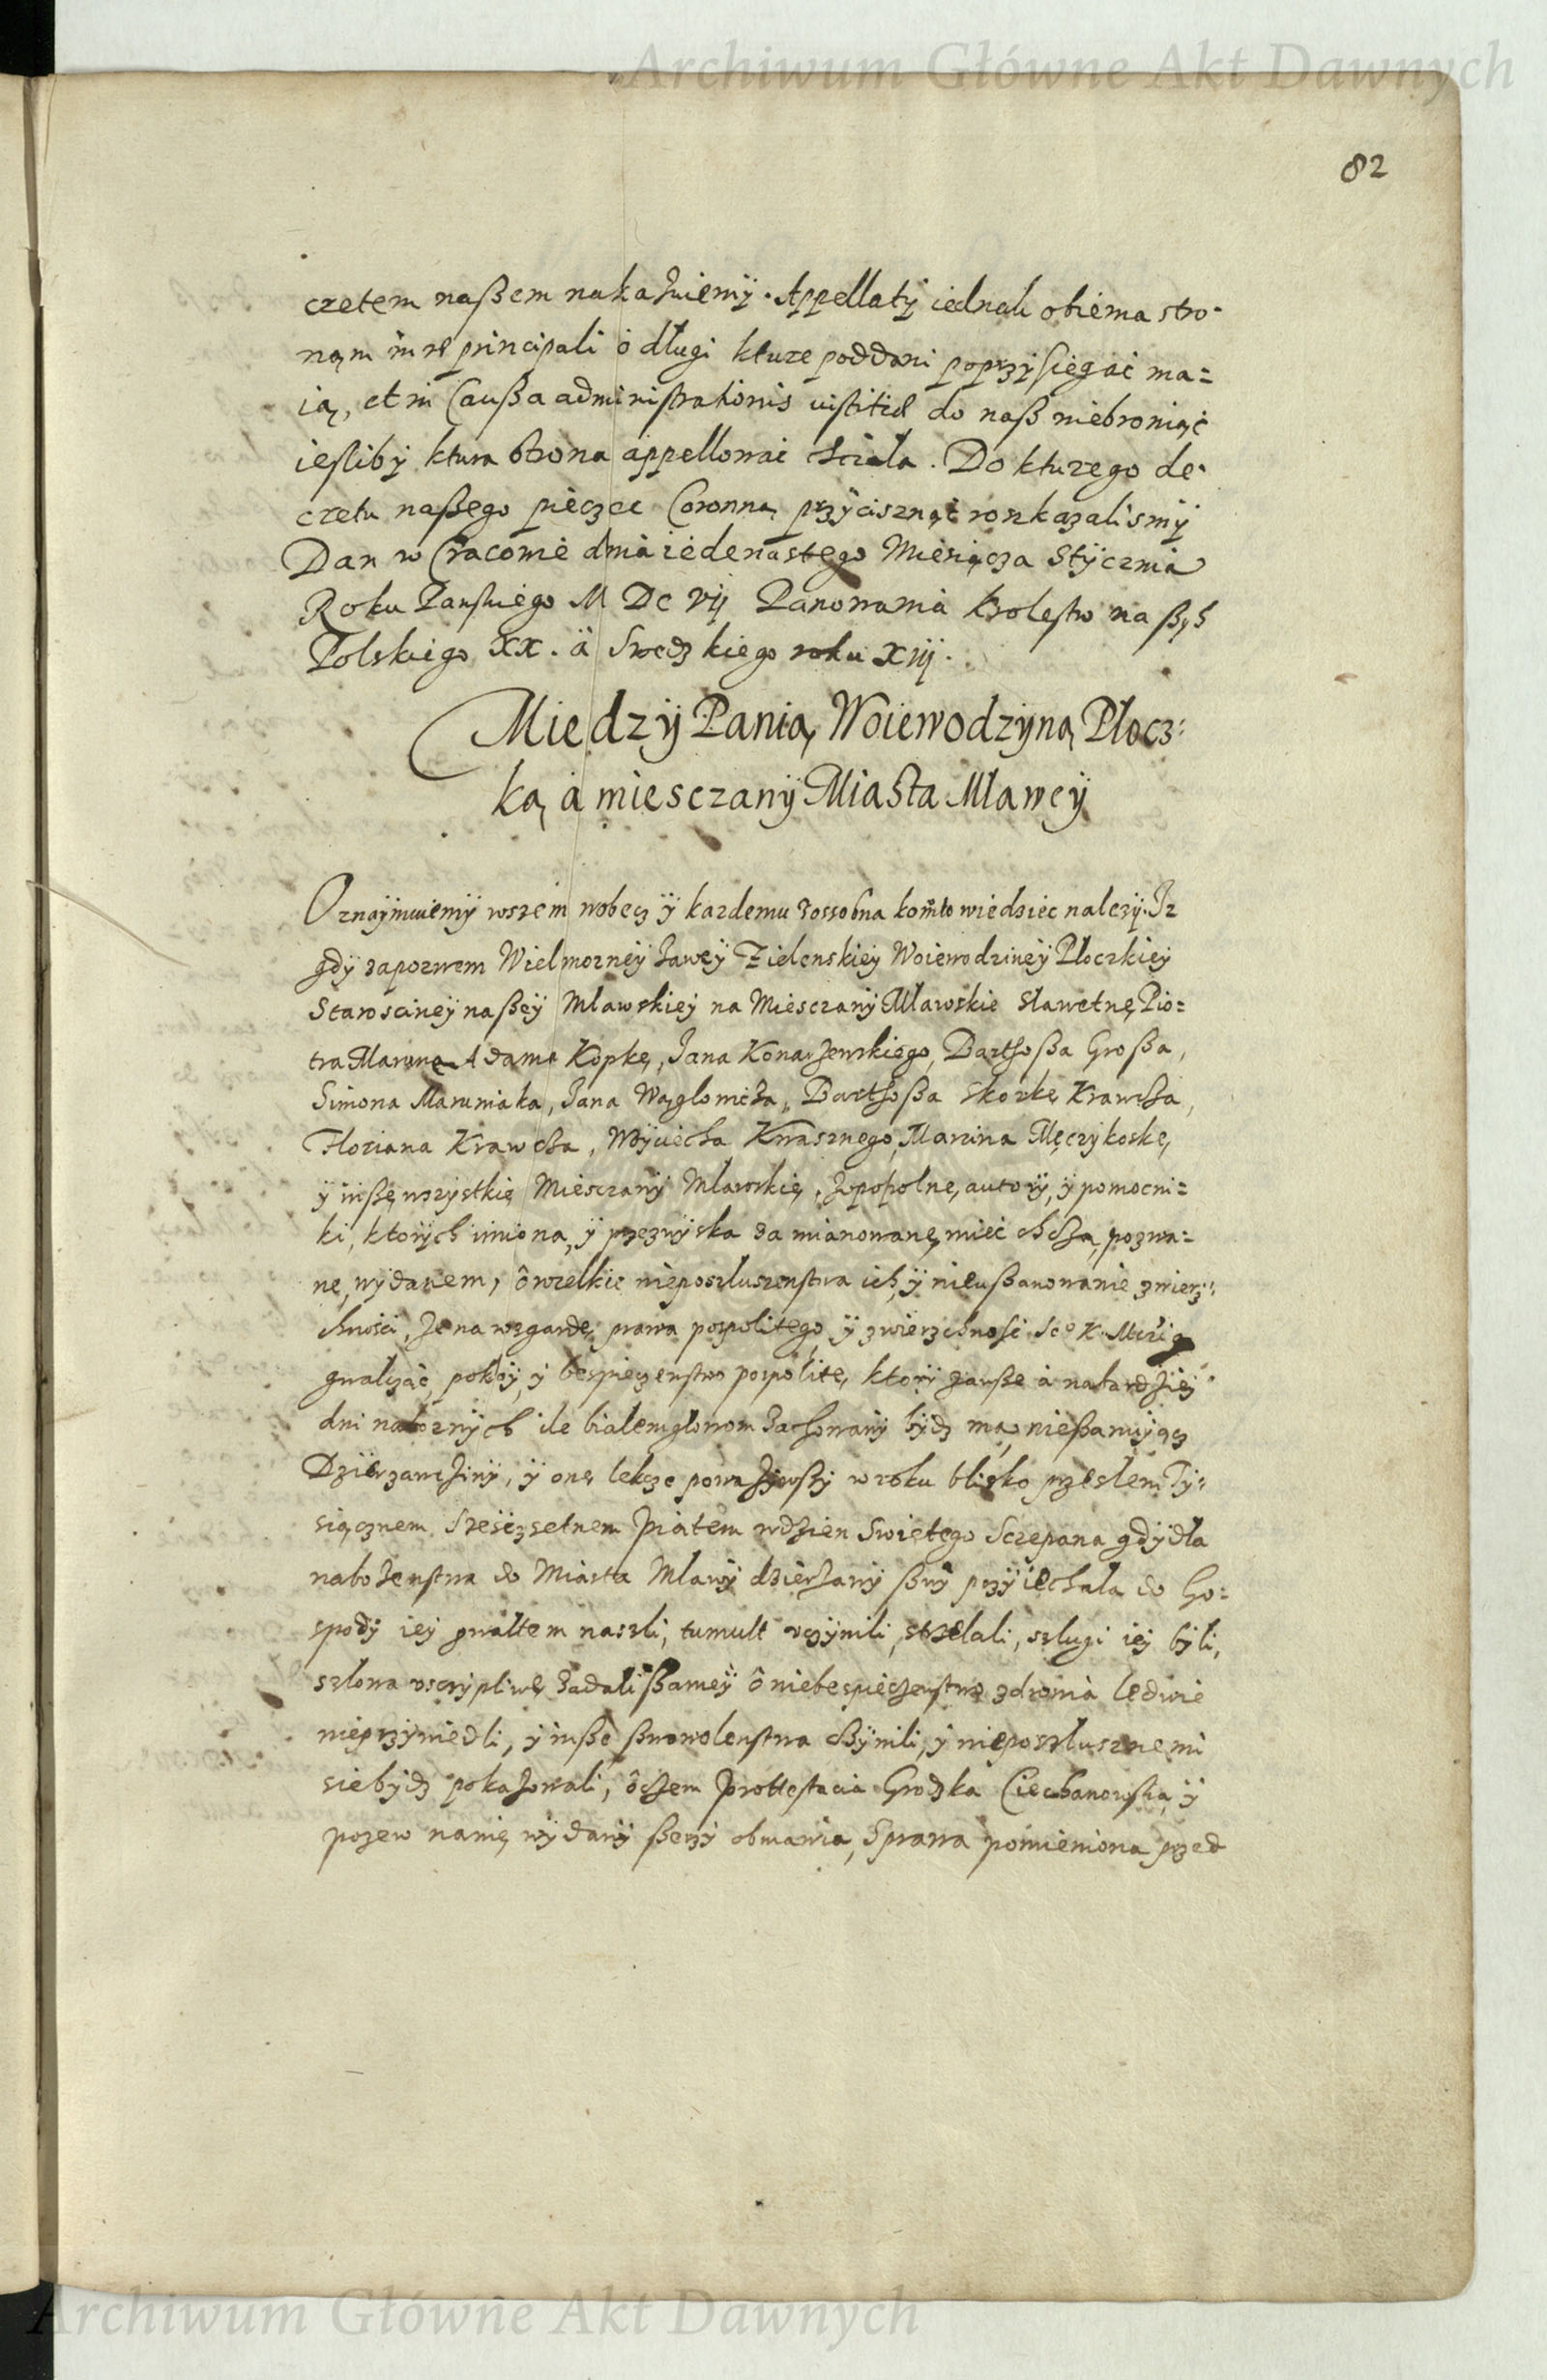 Archiwum Główne Akt Dawnych
82
cretem naßem nakazuiemÿ. Appellatÿ iednak obiema stro-
nam in re principali o długi kture poddani poprzÿsięgać ma=
ią, et in Caußa administrationis iustitiæ do naß niebroniąć
iesliby ktura strona appellować chciała. Do kturego de-
cretu naßego pieczęć Coronną przÿcisznąć roszkazalismÿ
Dan w Cracowie dnia iedenastego Miesiącza Stÿcznia
Roku Panskiego M Dc vij Panowania krolestw naßÿch
Polskiego XX. ä Swedzkiego roku Xiij.
Miedzÿ Panią Woiewodzÿną Płocz=
ką, á miesczanÿ Miasta Mławeÿ
Oznaÿmuiemÿ wszem wobecz ÿ kazdemu zossobna komuto wiedziec nalezÿ. Iz
gdÿ zapozwem Wielmozneÿ Zieleńskieÿ Woiewodzineÿ Płoczkieÿ
Staroscineÿ naßeÿ Mławskieÿ na Miesczanÿ Mławskie Sławetne Pio=
tra Adama Kopkę, Jana Konarzewskiego, Barthoßa Großa,
Simona Maruniaka, Jana Barthoßa Skorkę Krawcza,
Floriana Krawcza, Woÿciecha Krasznego, Marcina Męczÿkoskę,
ÿ inßę wszÿstkię Miesczanÿ Mławskię, autorÿ, ÿ pomocni=
ki, ktorÿch imiona, ÿ przezwÿska za mianowanę mieć chczą, pozwa=
nę, wÿdanem, ô wszelkie nieposzłuszenstwa ich, ÿ nieußanowanie zwierz=
chnosci, ze na wzgardę prawa pospolitego, ÿ zwierzchnosci Je° K. Mczi
gwalcząc pokoÿ, ÿ bespieczenstwo pospolite, ktorÿ zawße a nabardziej
dni naboznÿch ile białemgłowom zachowanÿ bÿdz ma, nießanuÿącz
Dzierzawczinÿ, ÿ onę lekcze poważÿwßÿ w roku blisko przesłem Tÿ=
siącznem Szesczsetnem Piątem wdzien Swiętego Sczepana gdÿ dla
nabozenstwa do Miasta Mławÿ dzierzawÿ ßwÿ przÿiechała do Go=
spodÿ ieÿ gwałtem naszli, tumult vczÿnili, strzelali, szlugi ieÿ bÿli,
szłowa vsczÿpliwe zadali ßameÿ ô niebespieczenstwo zdrowia ledwie
nieprzÿwiedli, ÿ inßę ßwowolenstwa czÿnili, ÿ nieposzłusznemi
sie bÿdz pokazowali, ôczem Prottestacia Grodzka Ciechanowska, ÿ
pozew nanię wÿdanÿ ßerzÿ obmawia, Sprawa pomieniona przed
Archiwum Główne Akt Dawnych